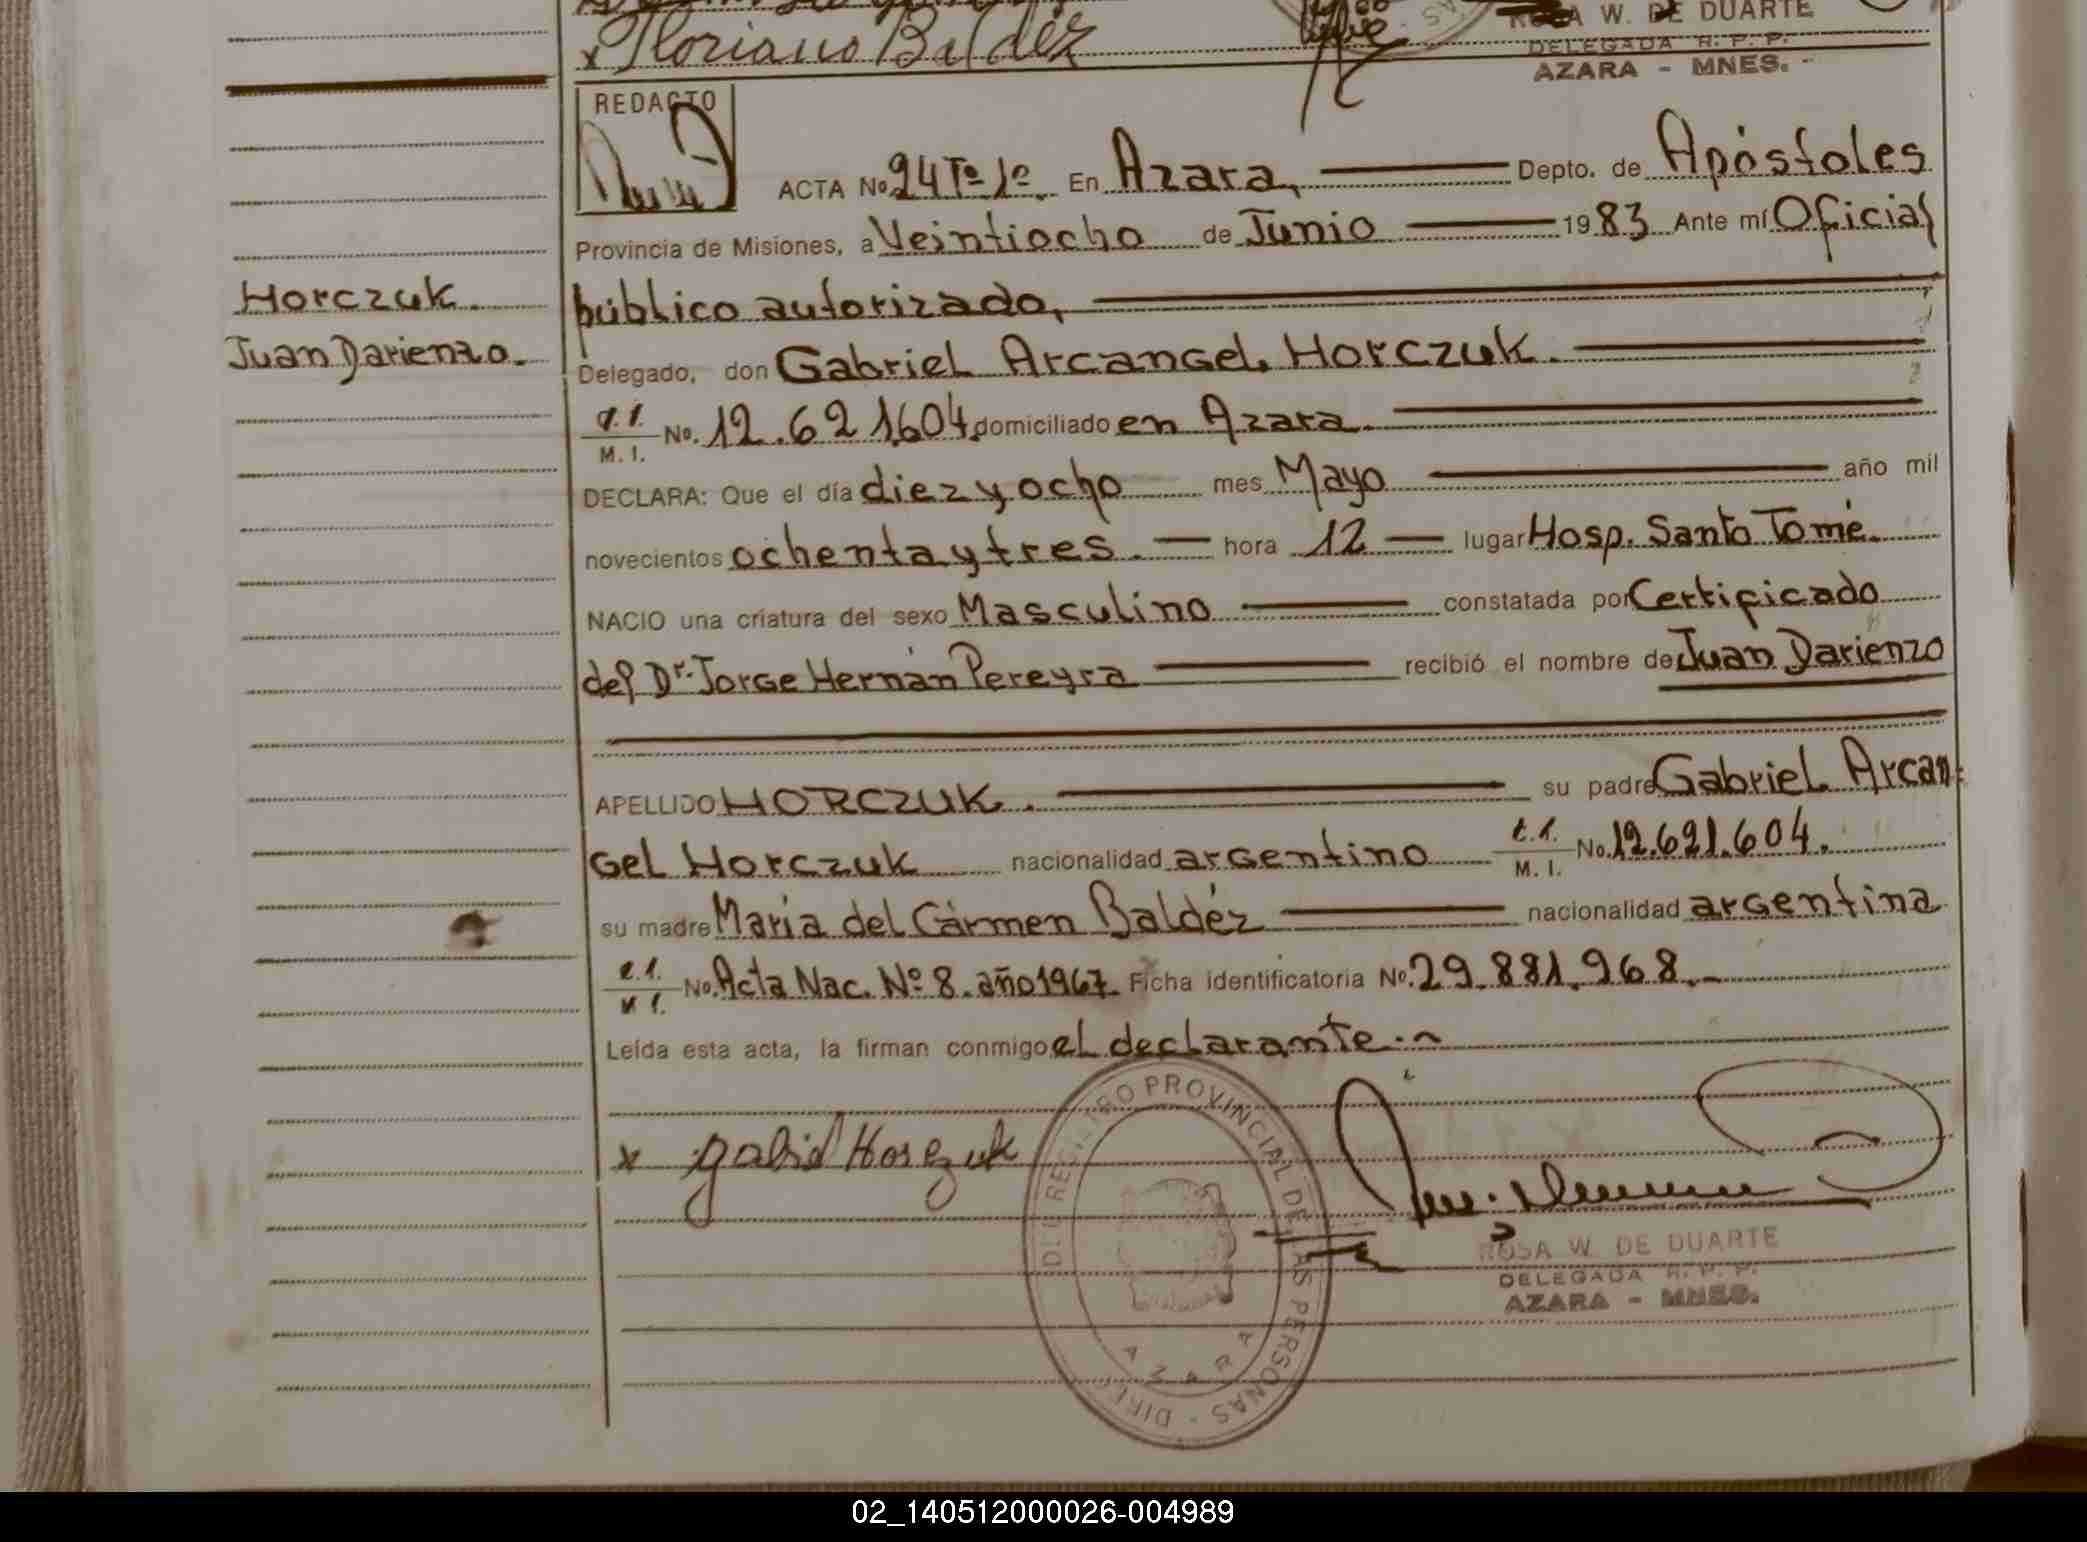 x Floriano Baldéz
ROSA W. DE DUARTE
DELEGADA R. P. P.
AZARA - MNES. -
REDACTO
ACTA No. 24 Tº 1º En Azara, Depto. de Apóstoles
Provincia de Misiones, a Veintiocho de Junio 1983 Ante mí Oficial
público autorizado,
Horczuk.
Juan Darienzo.
Delegado, don Gabriel Arcangel Horczuk.
M. I. No. 12.621.604, domiciliado en Azara.
DECLARA: Que el día diez y ocho mes Mayo año mil
novecientos ochenta y tres. hora 12 lugar Hosp. Santo Tomé.
NACIO una criatura del sexo Masculino constatada por Certificado
del Dr. Jorge Hernán Pereyra recibió el nombre de Juan Darienzo
APELLIDO HORCZUK. su padre Gabriel Arcan-
gel Horczuk nacionalidad argentino M. I. No. 12.621.604.
su madre María del Cármen Baldéz nacionalidad argentina
M. I. No. Acta Nac. Nº 8. año 1967. Ficha identificatoria No. 29.881.968.-
Leída esta acta, la firman conmigo el declarante.-
x Gabriel Horczuk
REGISTRO PROVINCIAL DE LAS PERSONAS - DIREC
AZARA
ROSA W. DE DUARTE
DELEGADA R. P. P.
AZARA - MNES.
02_140512000026-004989